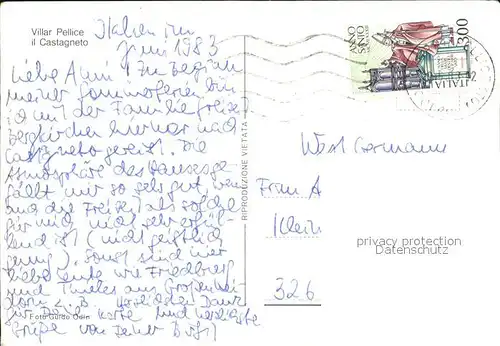 Villar Pellice
il Castagneto
Italien im
Juni 1983
Liebe Anni! Zu Beginn
meiner Sommerferien bin
ich mit der Familienfreizeit
hierher nach
Castagneto gereist. Die
Atmosphäre des Hauses ge-
fällt mir so sehr gut, wenn
auch die Freizeit als solche
für mich nicht sehr erfül-
lend ist (nicht geistlich
genug). Sonst sind hier
liebe Leute wie Friedberg
und Thieles aus Großenhei-
dorn z. B. Herzlichen Dank
für Deine Karte und herzlichste
Grüße von Deiner
Foto Guido Odin
RIPRODUZIONE VIETATA
ANNO
SANTO
300
ITALIA
West Germany
Frau A
Klein
326
privacy protection
Datenschutz